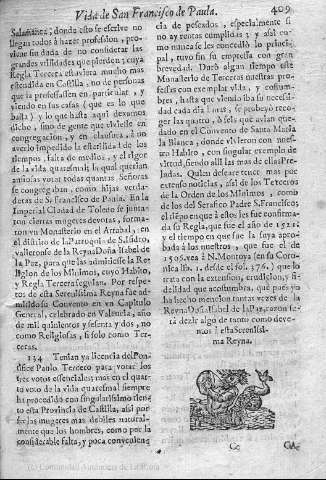 Vida de San Francisco de Paula. 409
Salamanca; donde esto se escrive no
llegan todos à hazer profession, pro-
vino sin duda de no considerar las
grandes utilidades que pierden; cuya
Regla Tercera estuviera mucho mas
estendida en Castilla, no de personas
que la professassen en particular, y
viviendo en sus casas (que es lo que
basta) y lo que hasta aqui dexamos
dicho, sino de gente que viviesse en
congregacion, y en clausura, à no
averlo impedido la esterilidad de los
tiempos, falta de medios, y el rigor
de la vida quaresmal; la qual querian
antiguas votar todas quantas Señoras
se congregaban, como hijas verda-
deras de S. Francisco de Paula. En la
Imperial Ciudad de Toledo se juntaron
ciertas mugeres devotas, forma-
ron vn Monasterio en el Arrabal, en
el distrito de la Parroquia de S. Isidro,
valieronse de la Reyna Doña Isabel de
la Paz, para que las admitiesse la Re-
ligion de los Minimos, cuyo Habito,
y Regla Tercera seguian. Por respe-
tos de esta Serenissima Reyna fue ad-
mitido su Convento en vn Capitulo
General, celebrado en Valencia, año
de mil quinientos y sesenta y dos, no
como Religiosas, si solo como Ter-
ceras.
134 Tenian ya licencia del Pon-
tifice Paulo Tercero para votar los
tres votos essenciales; mas en el quar-
to voto de la vida quaresmal siempre
ha procedido con singularissimo tiento
esta Provincia de Castilla, assi por
ser las mugeres mas debiles natural-
mente que los hombres, como por la
considerable falta, y poca conveniencia
cia de pescados, especialmente si
no ay rentas cumplidas; y assi au-
mo nunca se les concediò lo princi-
pal, tuvo fin su empressa con gran
brevedad. Durò algun tiempo este
Monasterio de Terceras nuestras pro-
fesses con exemplar vida, y costum-
bres, hasta que viendo iba su necessi-
dad cada dia à mas, se probeyò reco-
ger las quatro, ò seis que avian que-
dado en el Convento de Santa Maria
la Blanca, donde vivieron con nues-
tro Habito, con singular exemplo de
virtud, siendo alli las mas de ellas Pre-
ladas. Quien deseare tener mas por
extenso noticias, assi de los Terceros
de la Orden de los Minimos, como
de los del Serafico Padre S. Francisco;
el tiempo en que à estos les fue confirma-
da su Regla, que fue el año de 1521.
y el tiempo en que fue la suya apro-
bada à los nuestros, que fue el de
1506. vea à N. Montoya (en su Coro-
nica lib. 1. desde el fol. 175.) que lo
trata con la extension, erudicion, y fi-
delidad que acostumbra, que pues yà
ha hecho mencion tantas vezes de la
Reyna Doña Isabel de la Paz, razon se-
rà dezir algo de tanto como deve-
mos à esta Serenissi-
ma Reyna.
Cc
(c) Comunidad Autónoma de La Rioja